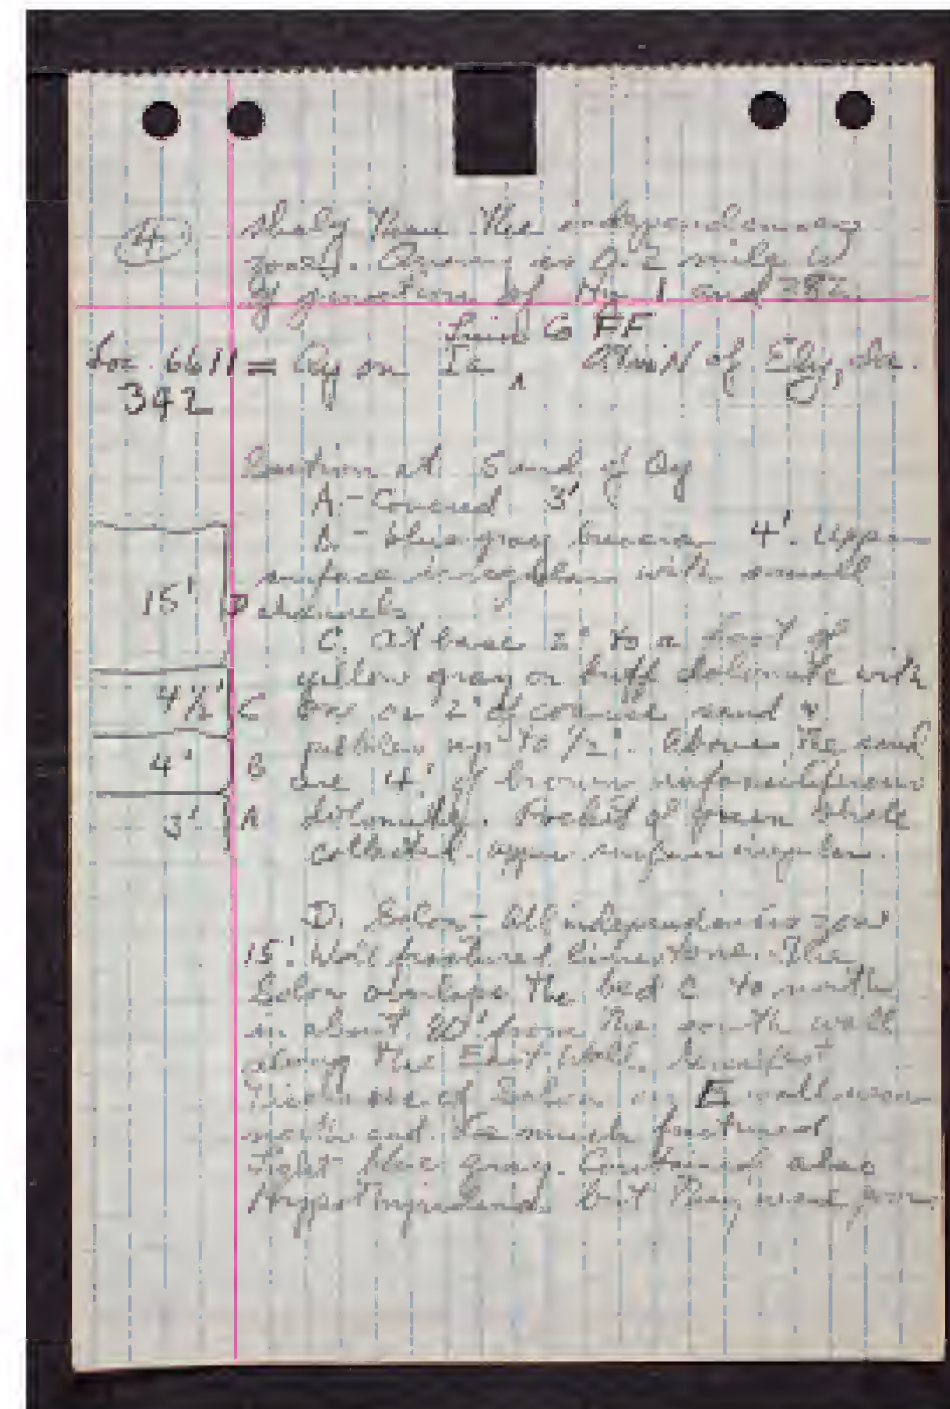 4
shaly than the independensis
zone. Quarry is 0.2 mile W
of junction of Hy 1 and 382.
Loc. 6611 = Qy on Ia, N of Ely, Ia.
342
Section at S end of Qy
A. - Covered 3'
B. - blue gray breccia 4'. Upper
surface irregular with small
channels
C. At base 2" to a foot of
yellow gray or buff dolomite with
one or 2" of coarse sand &
pebbles up to 1/2". Above the sand
are 4' of brown unfossiliferous
dolomite. Pocket of green shale
collected. Upper surface irregular.
15' D
4 1/2' C
4' B
3' A
D. Solon - All independensis zone
15'. Well fractured limestone. The
Solon overlaps the bed C to north
in about 80' from the south wall
along the East Wall.
Thickness of Solon on E wall near
north end. Too much fractured
light blue gray. Contained also
but they were